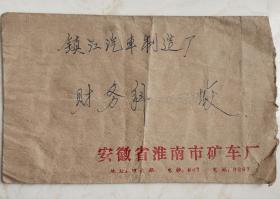 镇江汽车制造厂
财务科 收
安徽省淮南市矿车厂